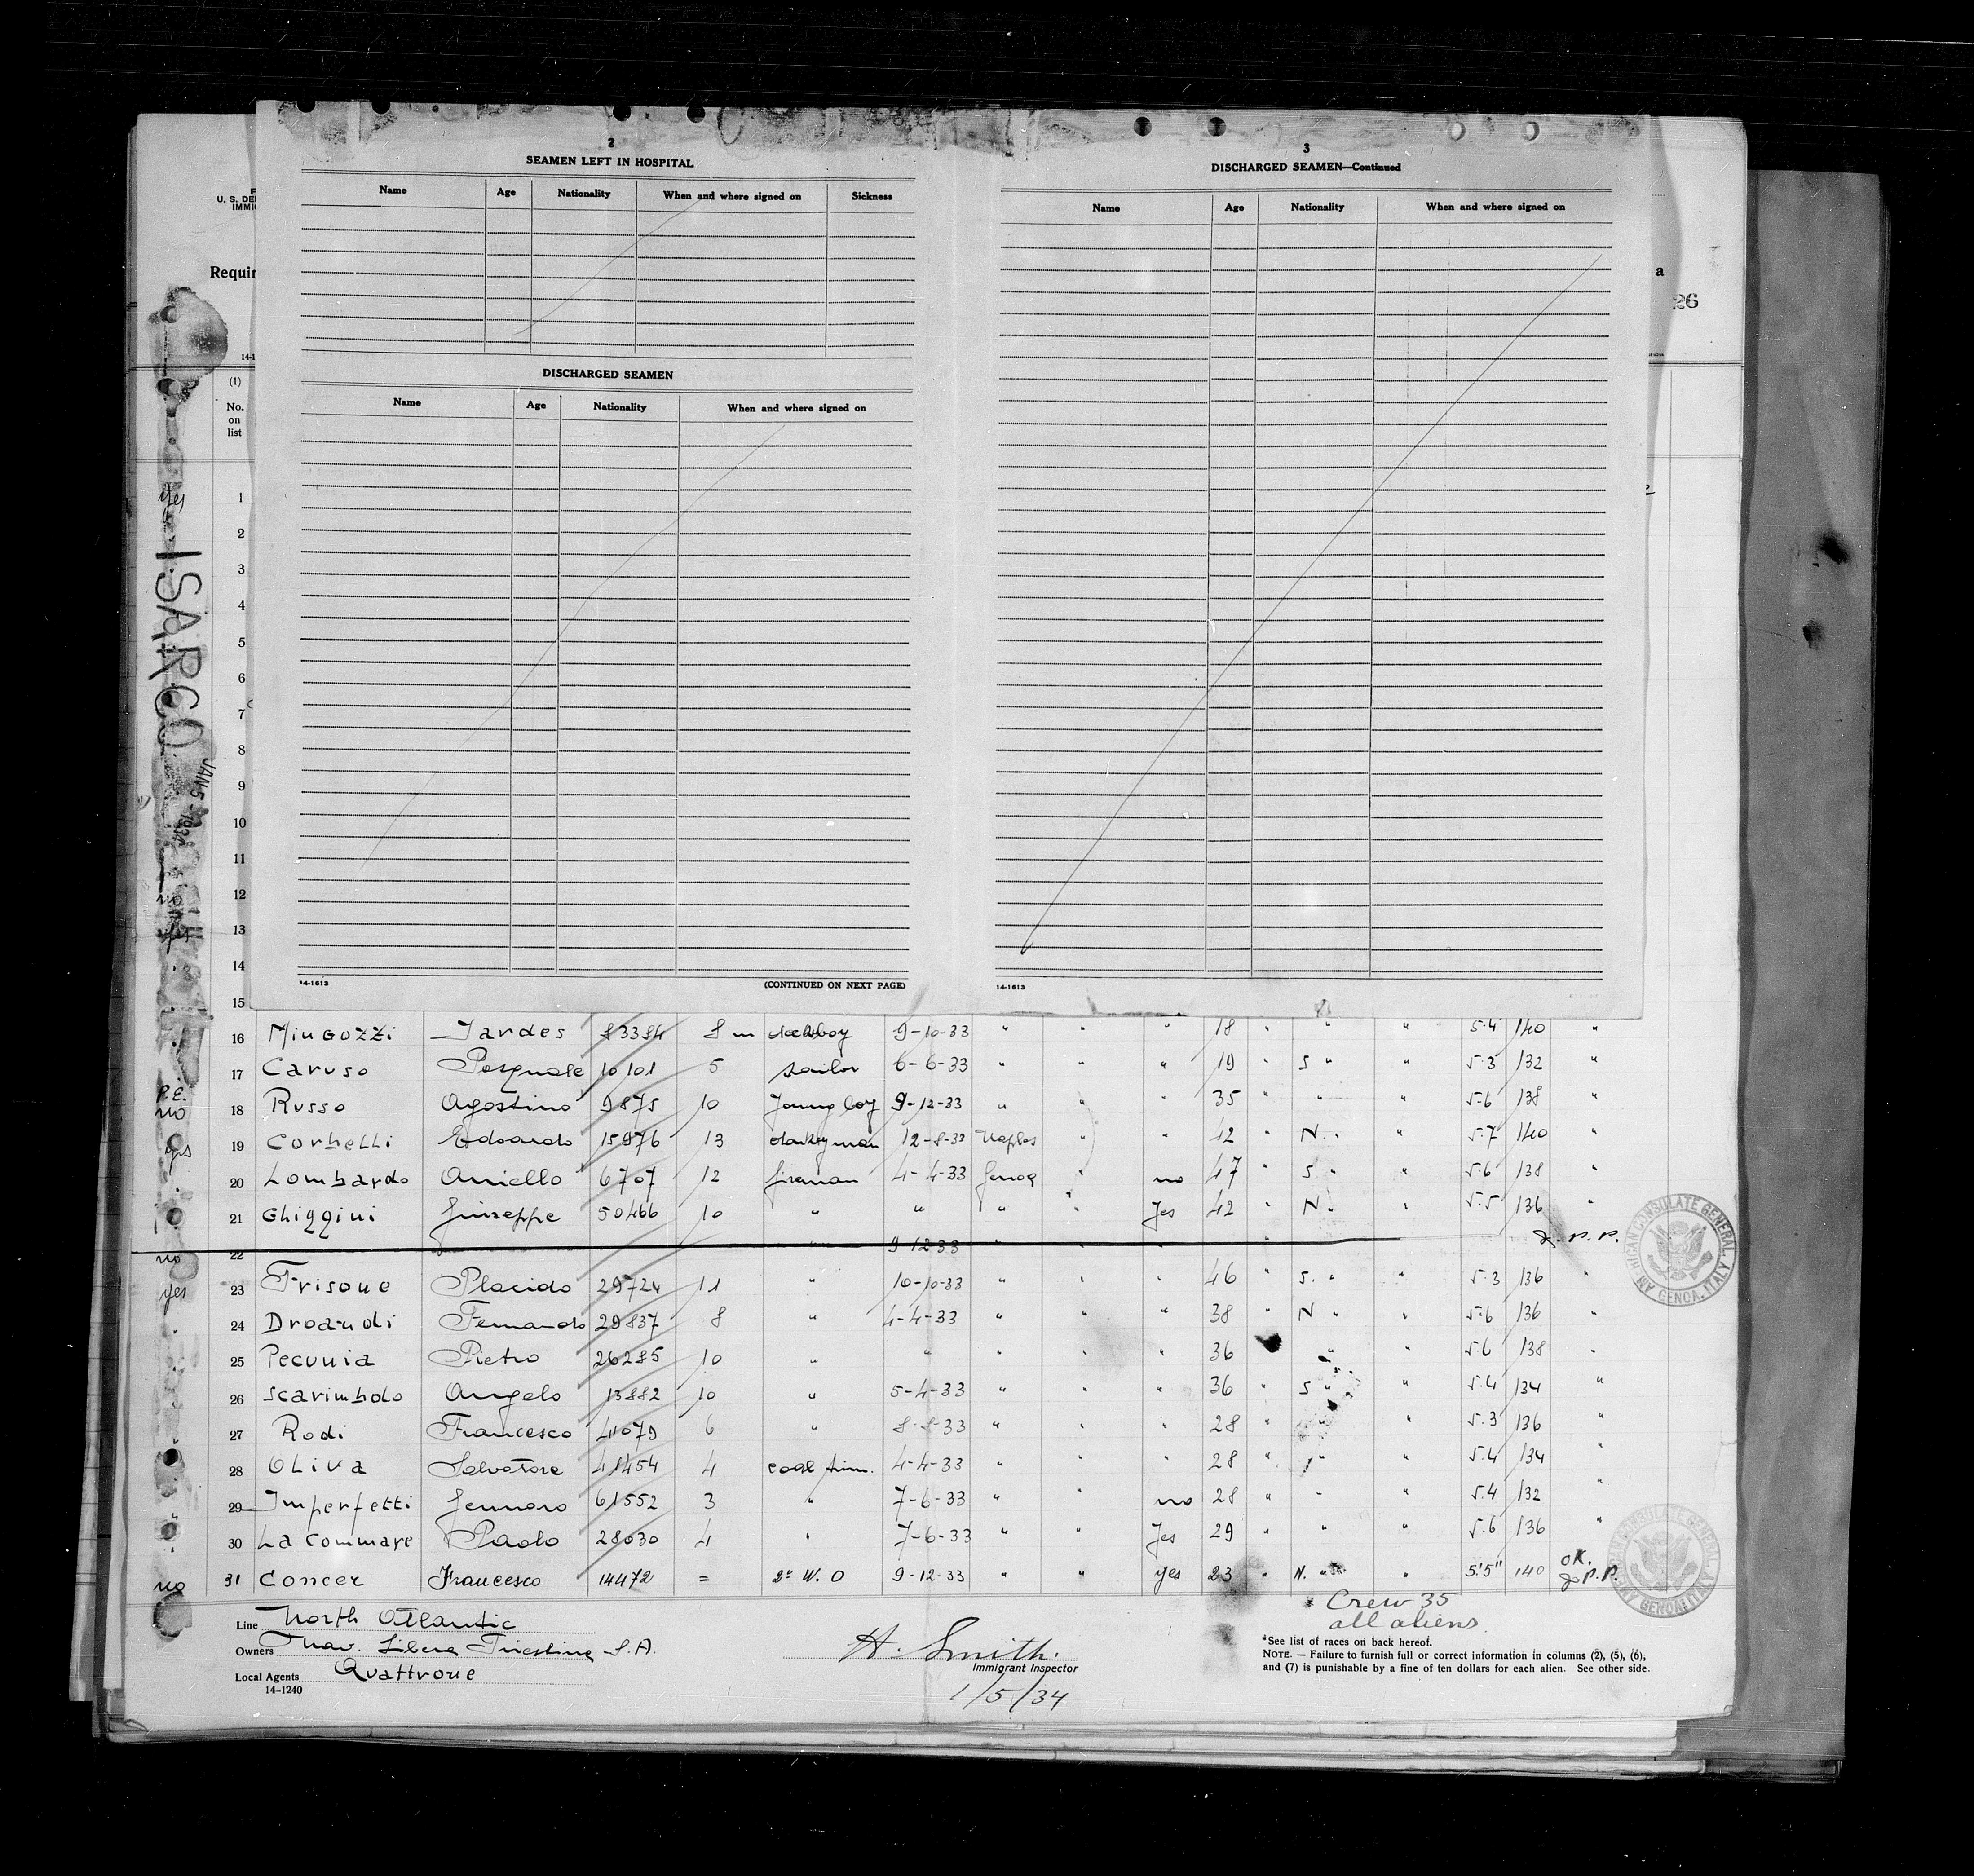 2
SEAMEN LEFT IN HOSPITAL
Name Age Nationality When and where signed on Sickness
DISCHARGED SEAMEN
Name Age Nationality When and where signed on
14-1613 (CONTINUED ON NEXT PAGE)
3
DISCHARGED SEAMEN—Continued
Name Age Nationality When and where signed on
14-1613
U. S. DE
IMMI
Requir
a
26
(1)
No.
on
list
ISARCO
JAN 5 - 1934
yes 1
2
3
4
5
6
7
8
9
10
11
no 12
yes 13
14
15
16 Mingozzi Jardes 83384 8 m 9-10-33 " " " 18 " " " 5.4 140 "
17 Caruso Pasquale 10101 5 sailor 6-6-33 " " " 19 " S " " 5.3 132 "
P.E.
no 18 Russo Agostino 9875 10 Young boy 9-12-33 " " " 35 " " " 5.6 138 "
yes 19 Corbelli Edoardo 15976 13 donkeyman 12-8-33 Naples " " 42 " N. " " 5.7 140 "
20 Lombardo Aniello 6707 12 fireman 4-4-33 Genoa " no 47 " S. " " 5.6 138 "
21 Ghiggini Giuseppe 50466 10 " " " " Yes 42 " N. " " 5.5 136 "
no 22 " 9-12-33 " " P.P.
yes 23 Frisone Placido 29724 11 " 10-10-33 " " " 46 " S. " " 5.3 136 "
24 Droandi Fernando 29837 8 " 4-4-33 " " " 38 " N " " 5.6 136 "
25 Pecunia Pietro 26285 10 " " " " " 36 " " 5.6 138 "
26 Scarimbolo Angelo 13882 10 " 5-4-33 " " " 36 " S " " 5.4 134 "
27 Rodi Francesco 41079 6 " 8-8-33 " " " 28 " " " 5.3 136 "
28 Oliva Salvatore 41454 4 coal trim. 4-4-33 " " " 28 " " " 5.4 134 "
29 Imperfetti Gennaro 61552 3 " 7-6-33 " " no 28 " " " 5.4 132 "
30 La Commare Paolo 28030 4 " 7-6-33 " " Yes 29 " " " 5.6 136 "
no 31 Concer Francesco 14472 = 2° W. O 9-12-33 " " yes 23 " N. " " 5'5" 140 OK. P.P.
AMERICAN CONSULATE GENERAL, GENOA, ITALY
Crew 35
all aliens.
Line North Atlantic
Owners Nav. Libera Triestina S.A.
Local Agents Quattrone
14-1240
H. Smith.
Immigrant Inspector
1/5/34
*See list of races on back hereof.
NOTE. — Failure to furnish full or correct information in columns (2), (5), (6),
and (7) is punishable by a fine of ten dollars for each alien. See other side.